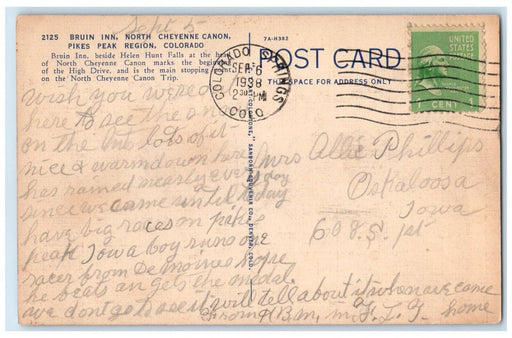 Sept 5
2125 BRUIN INN, NORTH CHEYENNE CANON,
PIKES PEAK REGION, COLORADO
Bruin Inn, beside Helen Hunt Falls at the head
of North Cheyenne Canon marks the beginning
of the High Drive, and is the main stopping
on the North Cheyenne Canon Trip.
7A-H382
POST CARD
THE SPACE FOR ADDRESS ONLY
COLORADO SPRINGS
SEP 6
230 PM
1938
COLO.
UNITED
STATES
POSTAGE
1 CENT 1
"COLORTONE," SANBORN SOUVENIR CO., DENVER, COLO.
wish you were
here to see the snow
on the mt lots of it
nice & warm down here
has rained nearly every day
since we came until today
have big races on pikes
peak Iowa boy runs one
racer from Demoines hope
he beats an gets the medal.
we dont go to see it will tell about it when we come
home
Mrs Allie Phillips
Oskaloosa
Iowa
608. S. 1st